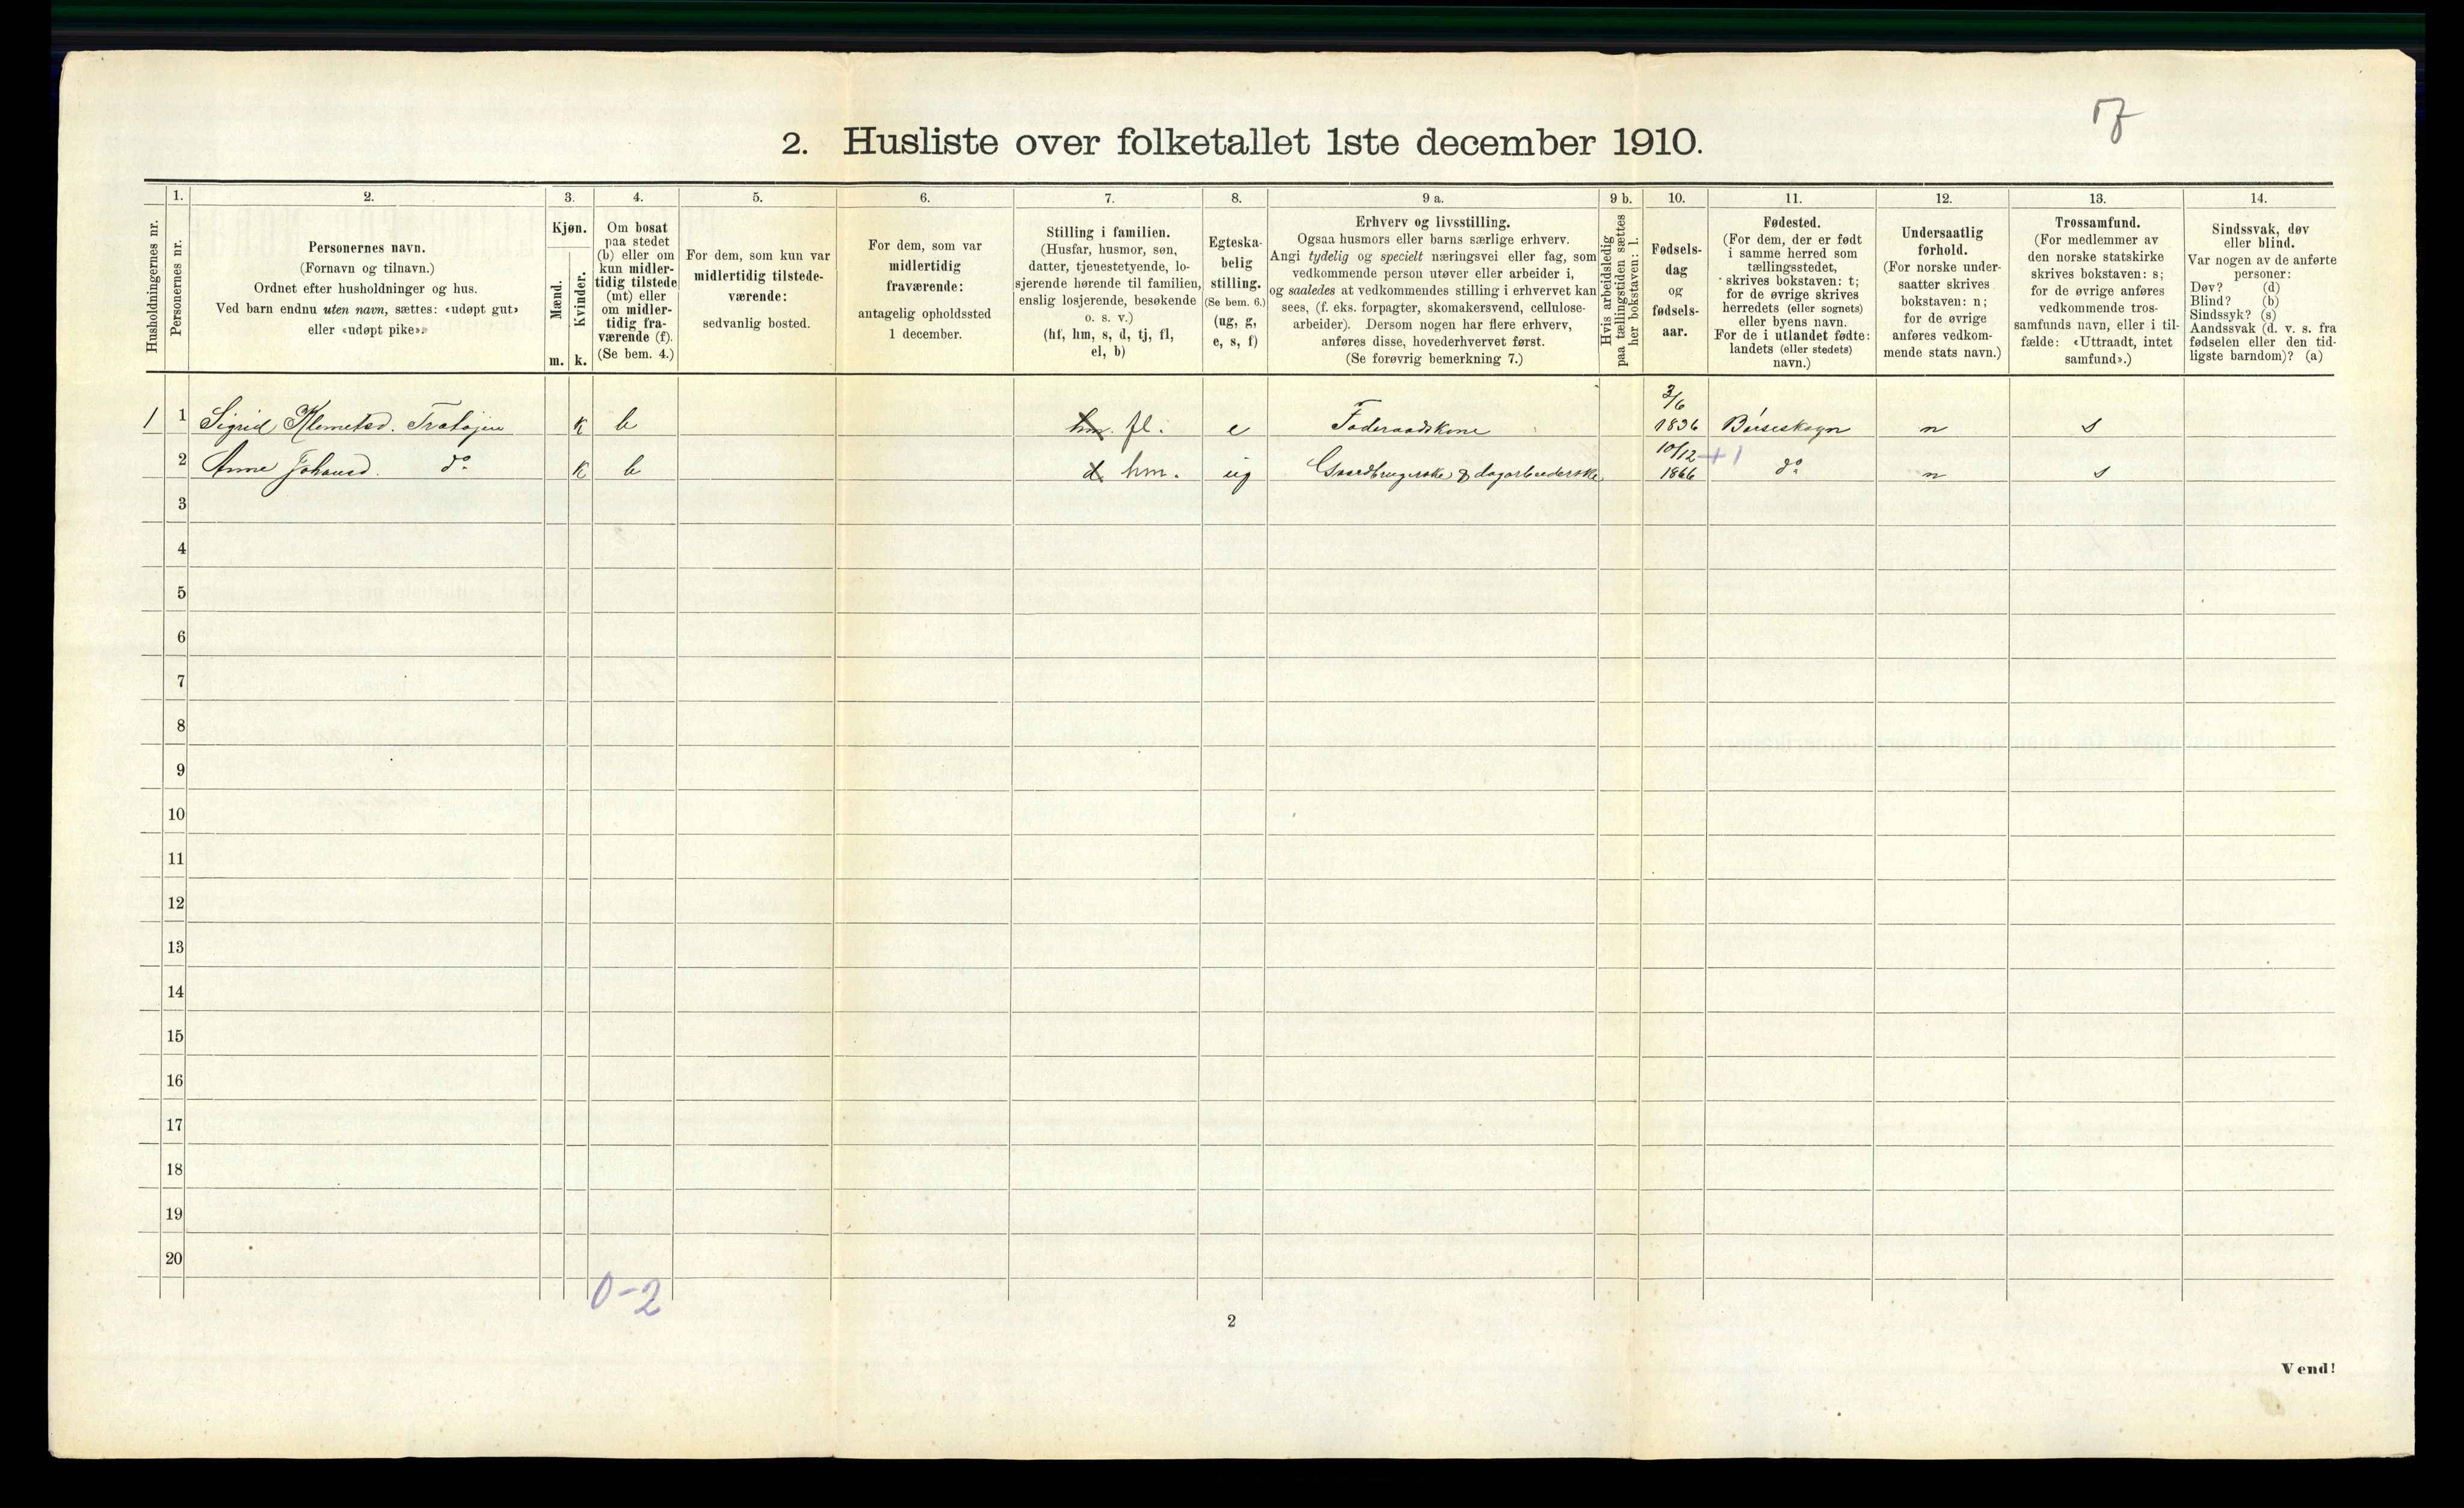 2. Husliste over folketallet 1ste december 1910.
Husholdningernes nr.
1.
Personernes nr.
2.
Personernes navn.
(Fornavn og tilnavn.)
Ordnet efter husholdninger og hus.
Ved barn endnu uten navn, sættes: «udøpt gut»
eller «udøpt pike».
3.
Kjøn.
Mænd.
Kvinder.
m. k.
4.
Om bosat
paa stedet
(b) eller om
kun midler-
tidig tilstede
(mt) eller
om midler-
tidig fra-
værende (f).
(Se bem. 4.)
5.
For dem, som kun var
midlertidig tilstede-
værende:
sedvanlig bosted.
6.
For dem, som var
midlertidig
fraværende:
antagelig opholdssted
1 december.
7.
Stilling i familien.
(Husfar, husmor, søn,
datter, tjenestetyende, lo-
sjerende hørende til familien,
enslig losjerende, besøkende
o. s. v.)
(hf, hm, s, d, tj, fl,
el, b)
8.
Egteska-
belig
stilling.
(Se bem. 6.)
(ug, g,
e, s, f)
9 a.
Erhverv og livsstilling.
Ogsaa husmors eller barns særlige erhverv.
Angi tydelig og specielt næringsvei eller fag, som
vedkommende person utøver eller arbeider i,
og saaledes at vedkommendes stilling i erhvervet kan
sees, (f. eks. forpagter, skomakersvend, cellulose-
arbeider). Dersom nogen har flere erhverv,
anføres disse, hovederhvervet først.
(Se forøvrig bemerkning 7.)
9 b.
Hvis arbeidsledig
paa tællingstiden sættes
her bokstaven: l.
10.
Fødsels-
dag
og
fødsels-
aar.
11.
Fødested.
(For dem, der er født
i samme herred som
tællingsstedet,
skrives bokstaven: t;
for de øvrige skrives
herredets (eller sognets)
eller byens navn.
For de i utlandet fødte:
landets (eller stedets)
navn.)
12.
Undersaatlig
forhold.
(For norske under-
saatter skrives
bokstaven: n;
for de øvrige
anføres vedkom-
mende stats navn.)
13.
Trossamfund.
(For medlemmer av
den norske statskirke
skrives bokstaven: s;
for de øvrige anføres
vedkommende tros-
samfunds navn, eller i til-
fælde: «Uttraadt, intet
samfund».)
14.
Sindssvak, døv
eller blind.
Var nogen av de anførte
personer:
Døv? (d)
Blind? (b)
Sindssyk? (s)
Aandssvak (d. v. s. fra
fødselen eller den tid-
ligste barndom)? (a)
1 1 Sigrid Klemetsd. k b hm. fl. e Føderaadskone 3/6 1836 Børseskogn n s
2 Anne Johansd. do k b d hm. ug Gaardbrugerske & dagarbeiderske 10/12 1866 +1 do n s
3
4
5
6
7
8
9
10
11
12
13
14
15
16
17
18
19
20
0-2
2
Vend!